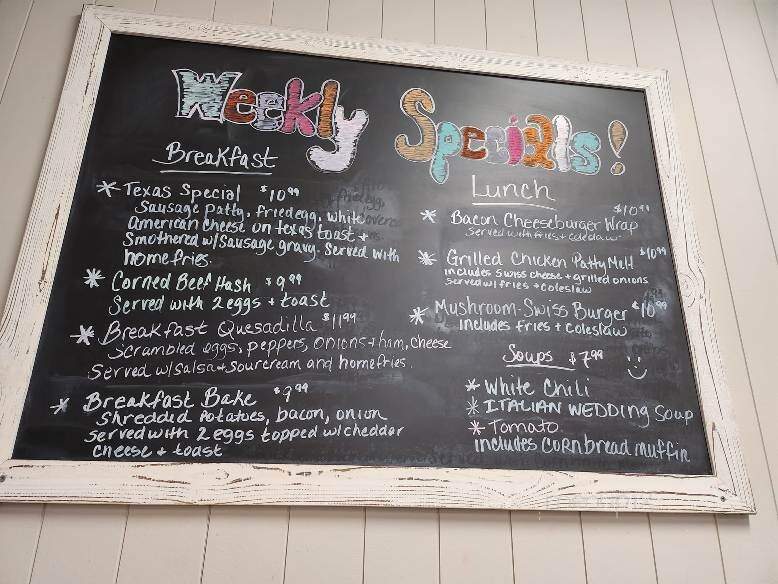 Weekly Specials!
Breakfast
* Texas Special $10.99
Sausage patty, fried egg, white
american cheese on texas toast +
Smothered w/ sausage gravy. Served with
homefries.
* Corned Beef Hash $9.99
Served with 2 eggs + toast
* Breakfast Quesadilla $11.99
Scrambled eggs, peppers, onions + ham, cheese
Served w/ salsa + sourcream and homefries.
* Breakfast Bake $9.99
Shredded Potatoes, bacon, onion
served with 2 eggs topped w/ cheddar
cheese + toast
Lunch
$10.99
* Bacon Cheeseburger Wrap
Served with fries + coleslaw
* Grilled Chicken Patty Melt $10.99
includes swiss cheese + grilled onions
served w/ fries + coleslaw
* Mushroom-Swiss Burger $10.99
includes fries + coleslaw
Soups $7.99
* White Chili
* ITALIAN WEDDING Soup
* Tomato
includes CORNbread muffin